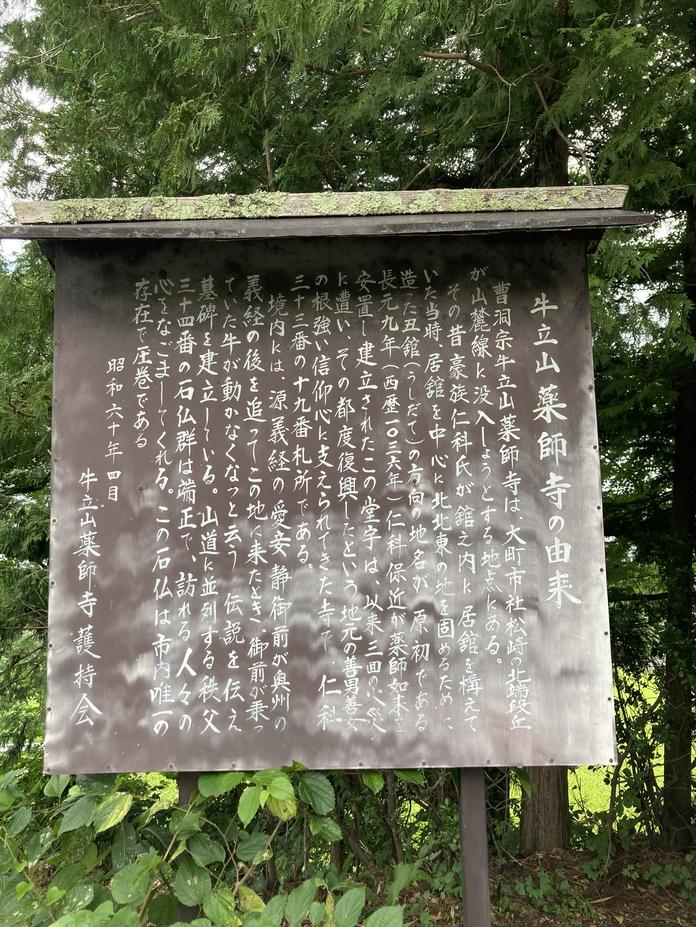 牛立山 薬師寺の由来
曹洞宗牛立山薬師寺は、大町市社松崎の北端段丘
が山麓線に没入しようとする地点にある。
その昔豪族仁科氏が舘之内に居舘を構えて
いた当時、居舘を中心に北北東の地を固めるために
造った丑舘(うしだて)の方向の地名が原初である
長元九年(西歴一〇三六年)仁科保近が薬師如来を
安置し建立されたこの堂宇は、以来三回の火災
に遭い、その都度復興したという地元の善男善女
の根強い信仰心に支えられてきた寺で、仁科
三十三番の十九番札所である。
境内には、源義経の愛妾静御前が奥州の
義経の後を追ってこの地に来たとき、御前が乗っ
ていた牛が動かなくなっと云う伝説を伝え
墓碑を建立している。山道に並列する秩父
三十四番の石仏群は端正で、訪れる人々の
心をなごましてくれる。この石仏は市内唯一の
存在で圧巻である
昭和六十年四月
牛立山薬師寺護持会